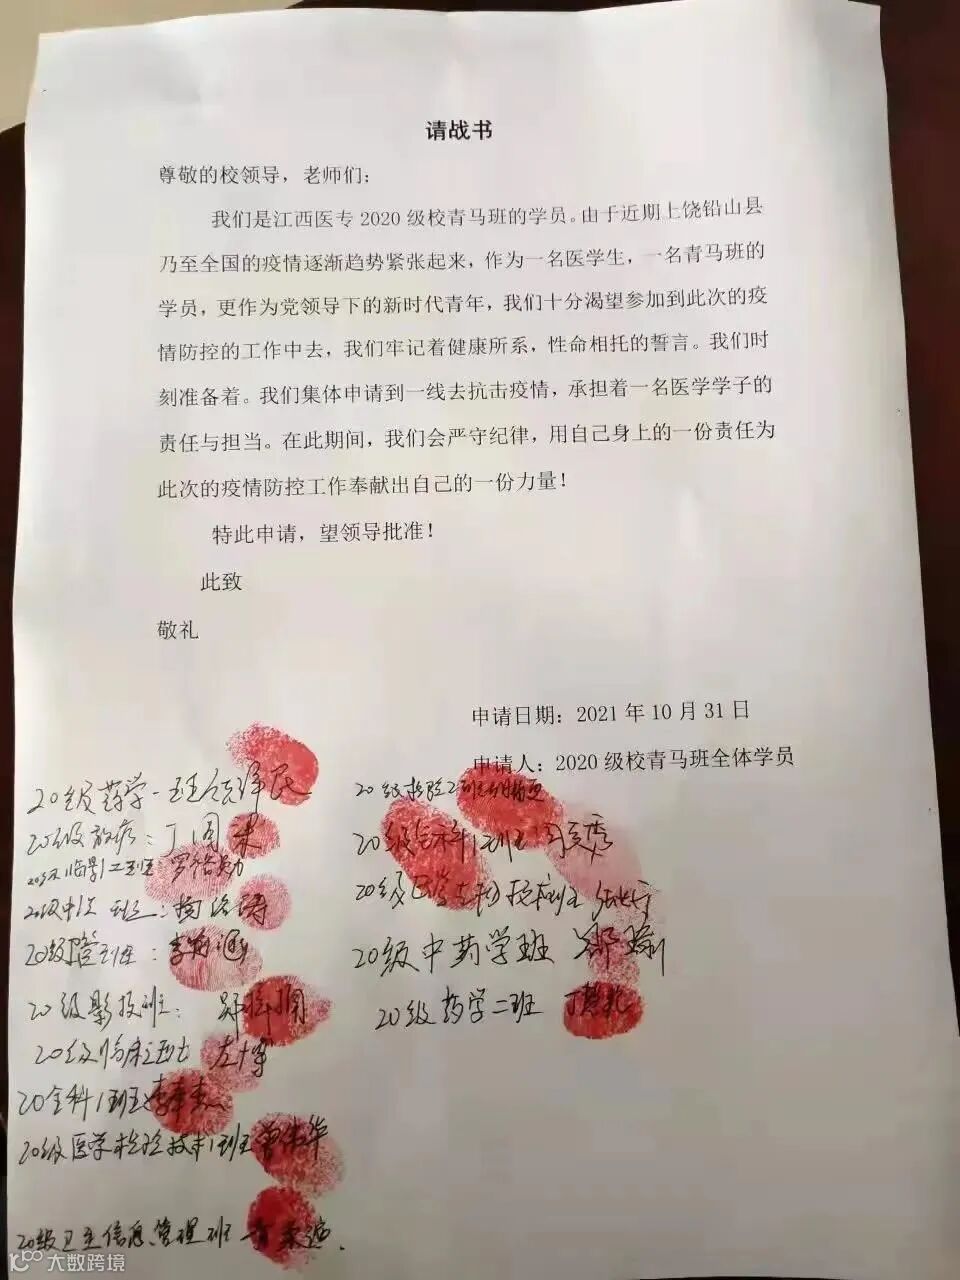 请战书
尊敬的校领导，老师们：
我们是江西医专 2020 级校青马班的学员。由于近期上饶铅山县
乃至全国的疫情逐渐趋势紧张起来，作为一名医学生，一名青马班的
学员，更作为党领导下的新时代青年，我们十分渴望参加到此次的疫
情防控的工作中去，我们牢记着健康所系，性命相托的誓言。我们时
刻准备着。我们集体申请到一线去抗击疫情，承担着一名医学学子的
责任与担当。在此期间，我们会严守纪律，用自己身上的一份责任为
此次的疫情防控工作奉献出自己的一份力量！
特此申请，望领导批准！
此致
敬礼
申请日期：2021 年 10 月 31 日
申请人：2020 级校青马班全体学员
20级药学一班
20级放疗：丁周
罗裕勋
20级
20级
20级影技班：
20级临床
20全科1班
20级医学检验技术1班 曾伟华
20级卫生信息管理班
20级检验2班
20级全科1班
20级
20级中药学班 郑瑜
20级药学二班
大数跨境